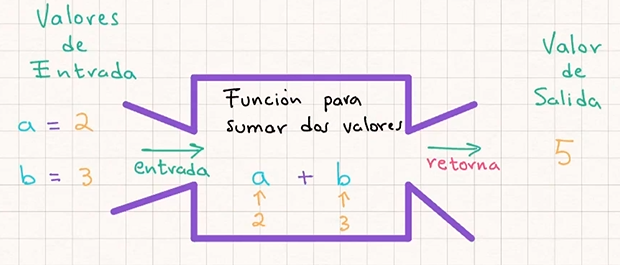 Valores
de
Entrada
a = 2
b = 3
entrada
Función para
sumar dos valores
a + b
↑ ↑
2 3
retorna
Valor
de
Salida
5